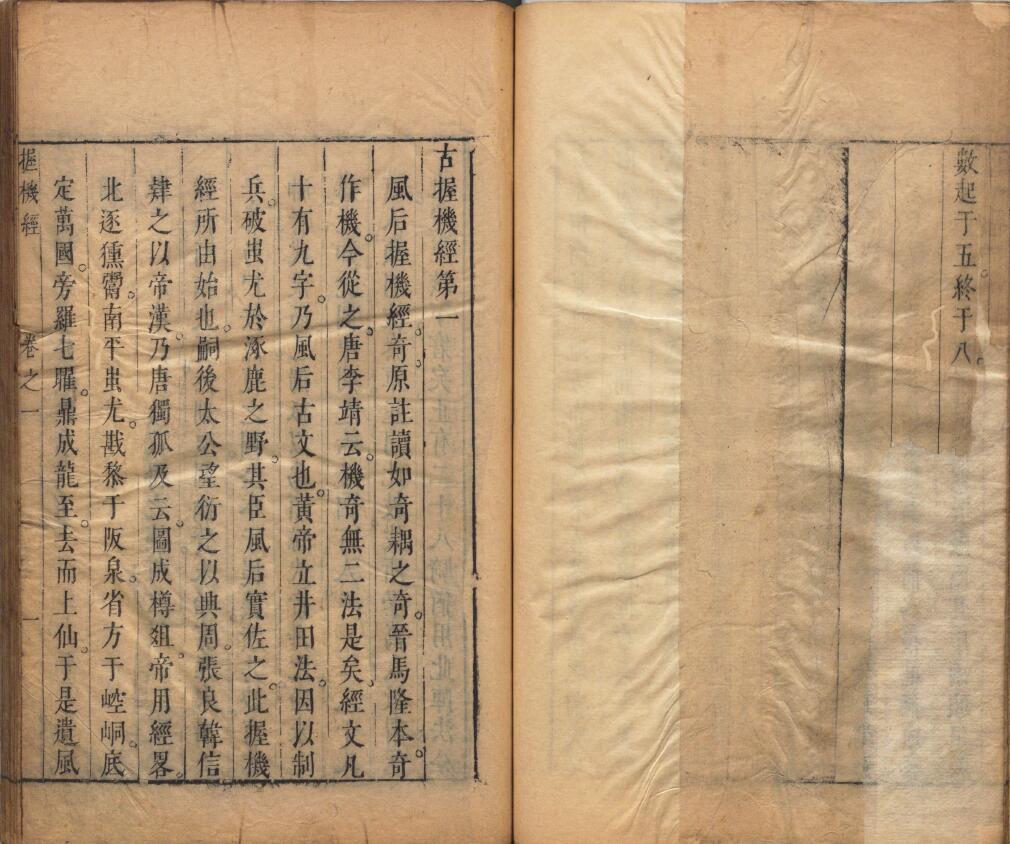 數起于五終于八
古握機經第一
風后握機經奇原註讀如奇耦之奇晉馬隆本奇
作機今從之唐李靖云機奇無二法是矣經文凡
十有九字乃風后古文也黃帝立井田法因以制
兵破蚩尤於涿鹿之野其臣風后實佐之此握機
經所由始也嗣後太公望衍之以典周張良韓信
肄之以帝漢乃唐獨孤及云圖成樽俎帝用經畧
北逐獯鬻南平蚩尤戡黎于阪泉省方于崆峒底
定萬國旁羅七曜鼎成龍至去而上仙于是遺風
握機經 卷之一 一